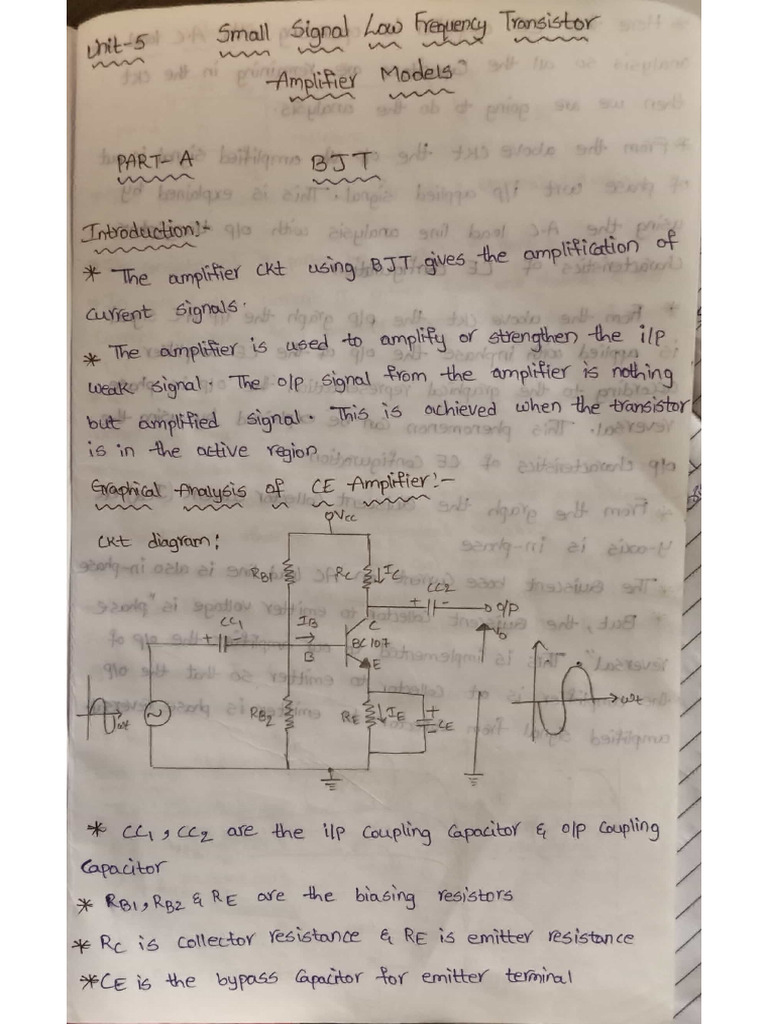 Unit-5 Small Signal Low Frequency Transistor
Amplifier Models
PART-A BJT
Introduction:-
* The amplifier ckt using BJT gives the amplification of
current signals.
* The amplifier is used to amplify or strengthen the i/p
weak signal. The o/p signal from the amplifier is nothing
but amplified signal. This is achieved when the transistor
is in the active region
Graphical Analysis of CE Amplifier:-
Ckt diagram:
Vcc
RB1
RC
IC
CC2
+ -
o/p
CC1
+ -
IB
B
C
BC107
E
Vo
ωt
RB2
RE
IE
+
-
CE
ωt
* CC1, CC2 are the i/p coupling capacitor & o/p coupling
capacitor
* RB1, RB2 & RE are the biasing resistors
* RC is collector resistance & RE is emitter resistance
* CE is the bypass capacitor for emitter terminal